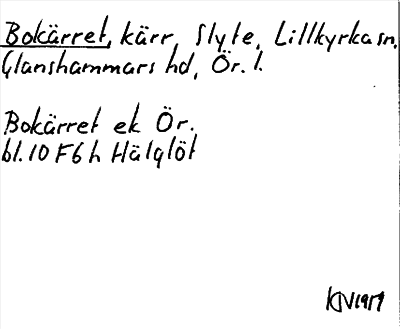 Bokärret, kärr, Slyte, Lillkyrka sn,
Glanshammars hd, Ör. l.
Bokärret ek Ör.
bl. 10 F6 h Hälglöt